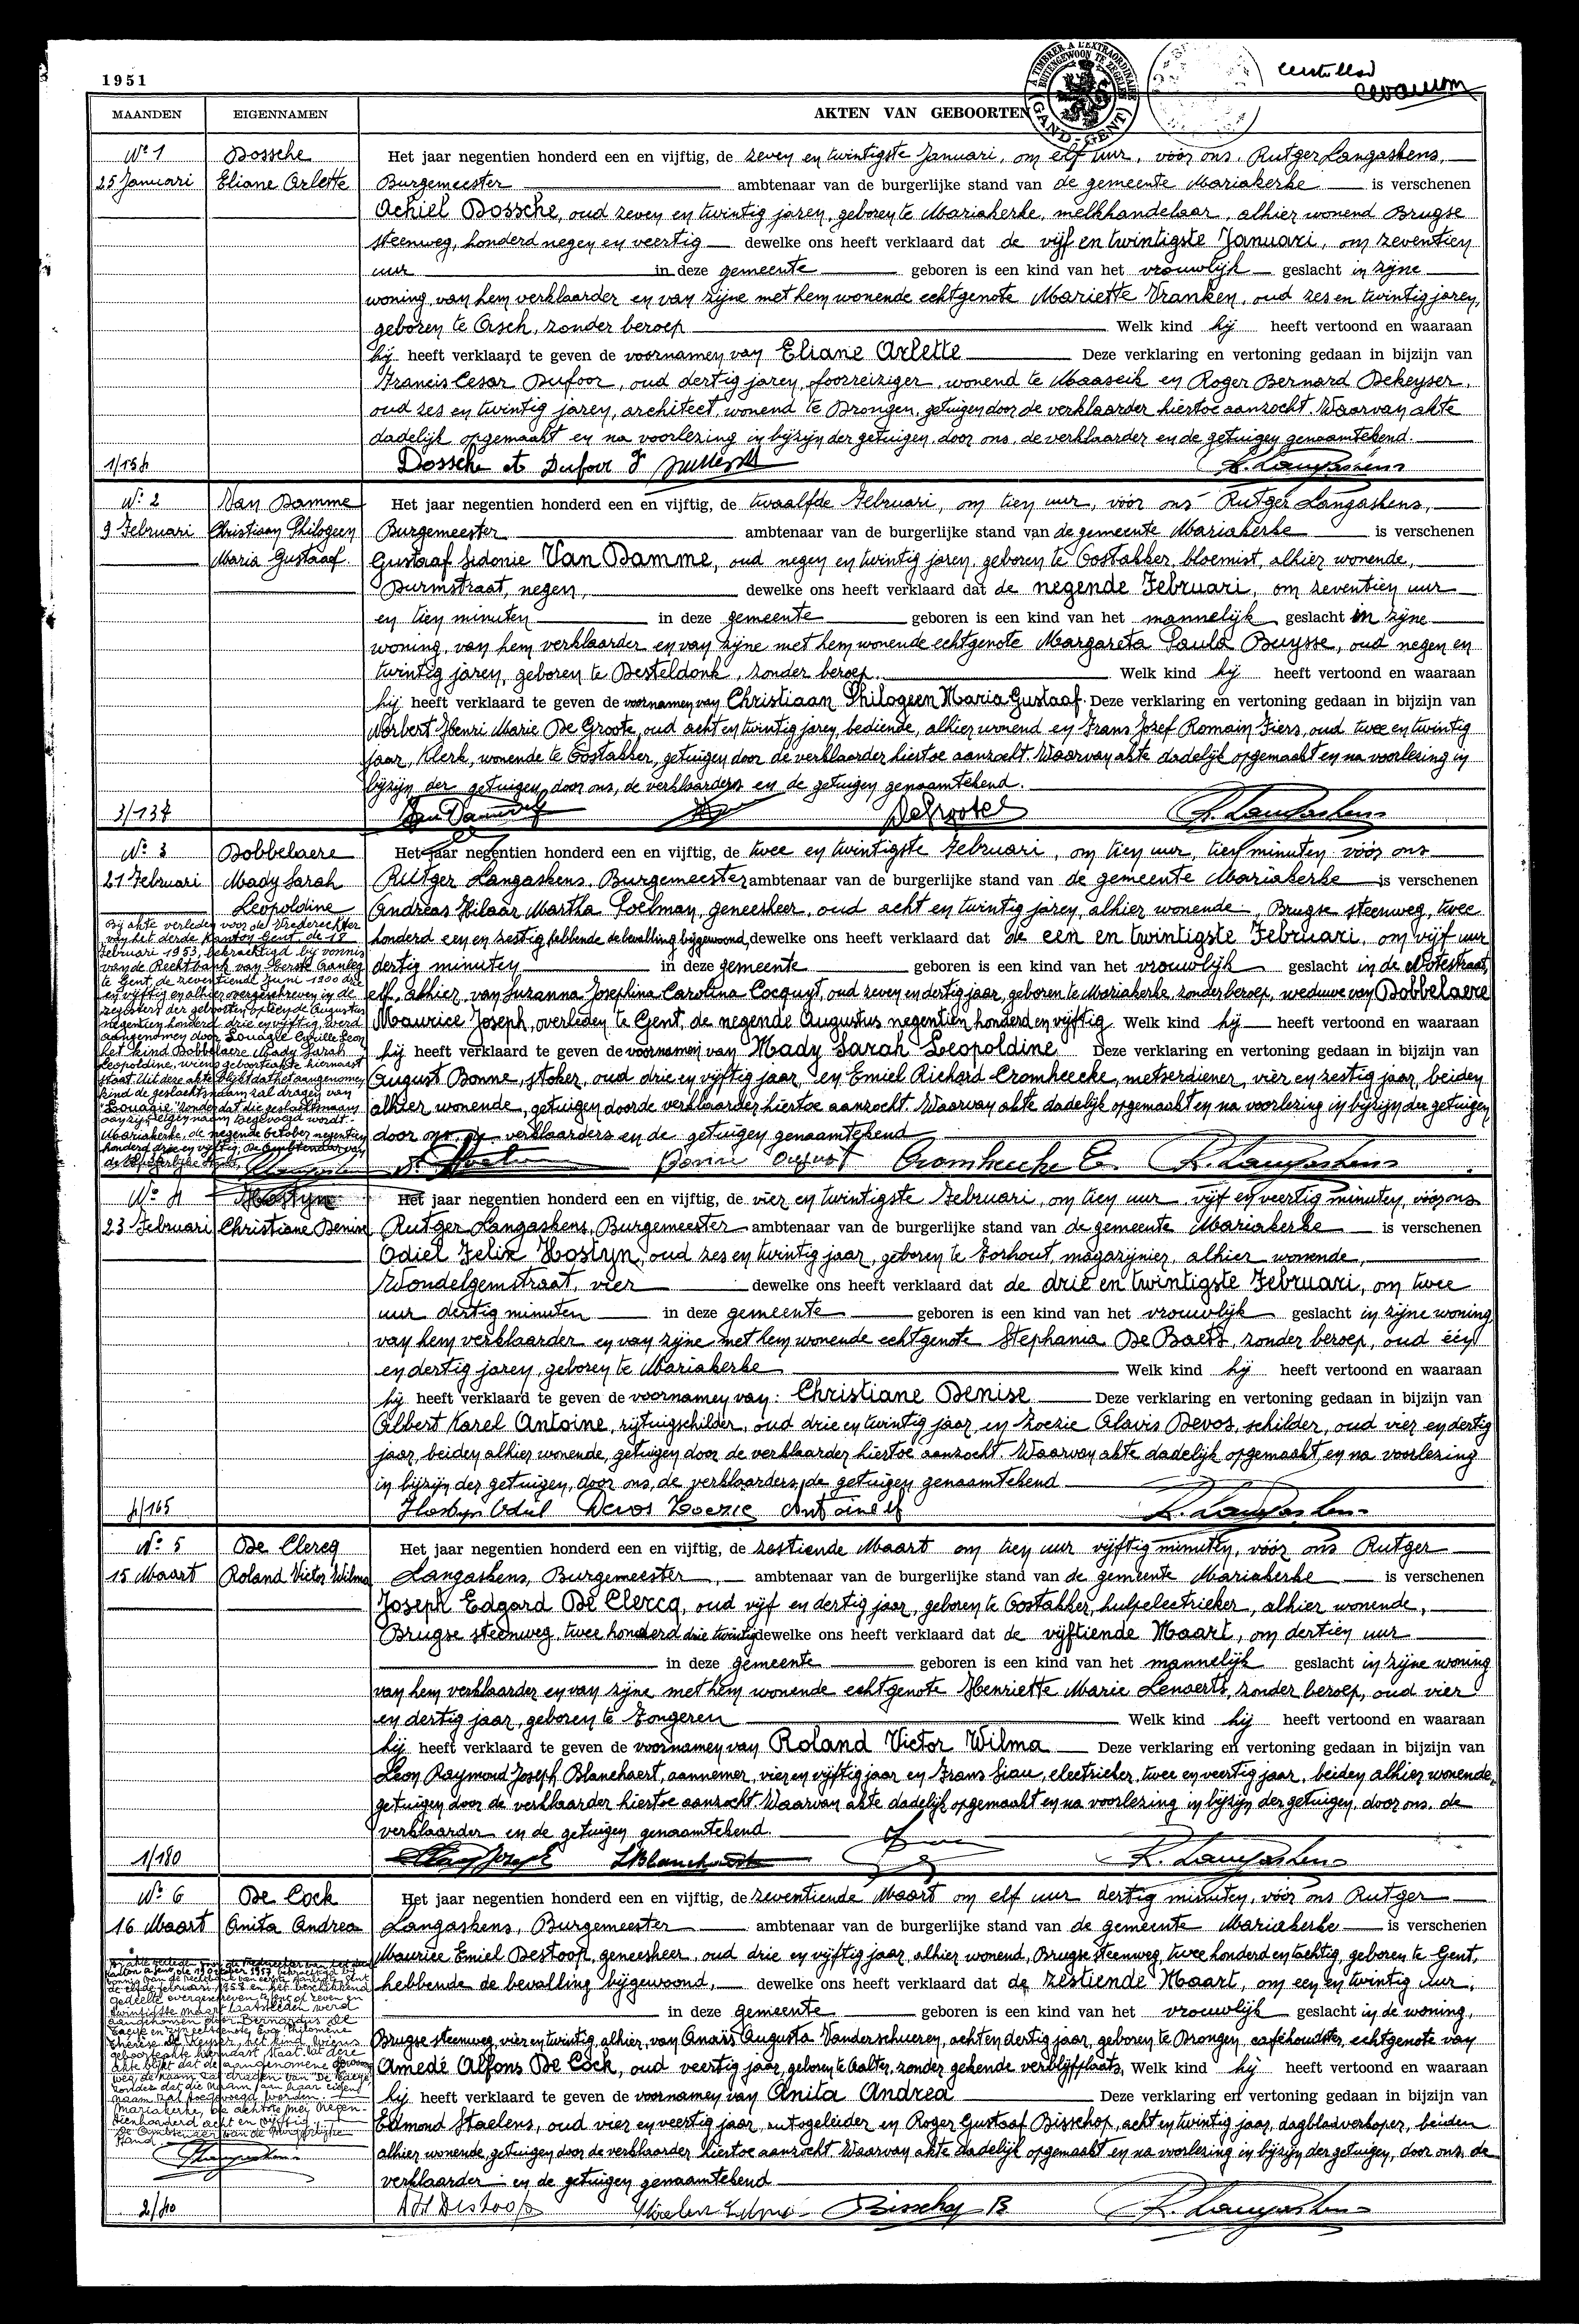 1951
A TIMBRER A L'EXTRAORDINAIRE
BUITENGEWOON TE ZEGELEN
GAND - GENT
MAANDEN EIGENNAMEN AKTEN VAN GEBOORTEN
N° 1 Dossche Het jaar negentien honderd een en vijftig, de zeven en twintigste Januari, om elf uur, vóór ons, Rutger Langaskens,
25 Januari Eliane Arlette Burgemeester ambtenaar van de burgerlijke stand van de gemeente Mariakerke is verschenen
Achiel Dossche, oud zeven en twintig jaren, geboren te Mariakerke, melkhandelaar, alhier wonend Brugse
steenweg, honderd negen en veertig dewelke ons heeft verklaard dat de vijf en twintigste Januari, om zeventien
uur in deze gemeente geboren is een kind van het vrouwlijk geslacht in zijne
woning, van hem verklaarder en van zijne met hem wonende echtgenote Mariette Vranken, oud zes en twintig jaren,
geboren te Asch, zonder beroep Welk kind hij heeft vertoond en waaraan
hij heeft verklaard te geven de voornamen van Eliane Arlette Deze verklaring en vertoning gedaan in bijzijn van
Francis Cesar Dufoor, oud dertig jaren, foorreiziger, wonend te Maaseik en Roger Bernard Dekeyser,
oud zes en twintig jaren, architect, wonend te Drongen, getuigen door de verklaarder hiertoe aanzocht. Waarvan akte
dadelijk opgemaakt en na voorlezing in bijzijn der getuigen, door ons, de verklaarder en de getuigen genaamtekend.
Dossche A Dufoor F R. Langaskens
N° 2 Van Damme Het jaar negentien honderd een en vijftig, de twaalfde Februari, om tien uur, vóór ons Rutger Langaskens,
9 Februari Christiaan Philogeen Burgemeester ambtenaar van de burgerlijke stand van de gemeente Mariakerke is verschenen
Maria Gustaaf. Gustaaf Sidonie Van Damme, oud negen en twintig jaren, geboren te Oostakker, bloemist, alhier wonende,
Durmstraat, negen, dewelke ons heeft verklaard dat de negende Februari, om zeventien uur
en tien minuten in deze gemeente geboren is een kind van het mannelijk geslacht in zijne
woning, van hem verklaarder en van zijne met hem wonende echtgenote Margareta Paula Buysse, oud negen en
twintig jaren, geboren te Desteldonk, zonder beroep. Welk kind hij heeft vertoond en waaraan
hij heeft verklaard te geven de voornamen van Christiaan Philogeen Maria Gustaaf. Deze verklaring en vertoning gedaan in bijzijn van
Norbert Henri Marie De Groote, oud acht en twintig jaren, bediende, alhier wonend en Frans Jozef Romain Fiers, oud twee en twintig
jaar, Klerk, wonende te Oostakker, getuigen door de verklaarder hiertoe aanzocht. Waarvan akte dadelijk opgemaakt en na voorlezing in
bijzijn der getuigen, door ons, de verklaarders en de getuigen genaamtekend.
3/137 Van Damme DeGroote R. Langaskens
N° 3 Dobbelaere Het jaar negentien honderd een en vijftig, de twee en twintigste Februari, om tien uur, tien minuten vóór ons
21 Februari Mady Sarah Rutger Langaskens, Burgemeester ambtenaar van de burgerlijke stand van de gemeente Mariakerke is verschenen
Leopoldine Andreas Hilaar Martha Poelman, geneesheer, oud acht en twintig jaren, alhier wonende, Brugse steenweg, twee
honderd een en zestig, hebbende de bevalling bijgewoond, dewelke ons heeft verklaard dat de een en twintigste Februari, om vijf uur
dertig minuten in deze gemeente geboren is een kind van het vrouwlijk geslacht in de Notestraat,
elf, alhier, van Suzanna Josephina Carolina Cocquyt, oud zeven en dertig jaar, geboren te Mariakerke, zonder beroep, weduwe van Dobbelaere
Maurice Joseph, overleden te Gent, de negende Augustus negentien honderd en vijftig. Welk kind hij heeft vertoond en waaraan
hij heeft verklaard te geven de voornamen van Mady Sarah Leopoldine Deze verklaring en vertoning gedaan in bijzijn van
August Bonne, stoker, oud drie en vijftig jaar en Emiel Richard Cromheecke, metserdiener, vier en zestig jaar, beiden
alhier wonende, getuigen door de verklaarder hiertoe aanzocht. Waarvan akte dadelijk opgemaakt en na voorlezing in bijzijn der getuigen
door ons, de verklaarders en de getuigen genaamtekend
Bonne August Cromheecke E. R. Langaskens
Bij akte verleden voor de Vrederechter
van het derde Kanton Gent, de 18
Februari 1953, bekrachtigd bij vonnis
van de Rechtbank van Eerste Aanleg
te Gent, de zeventiende Juni 1900 drie
en vijftig en alhier overgeschreven in de
registers der geboorten op een de Augustus
negentien honderd drie en vijftig, werd
aangenomen door Louagie Camille Leon
het kind Dobbelaere Mady Sarah
Leopoldine, wiens geboorteakte hiernaast
staat. Uit deze akte blijkt dat het aangenomen
kind de geslachtsnaam zal dragen van
"Louagie" zonder dat die geslachtsnaam
aan zijn eigen naam toegevoegd wordt.
Mariakerke, de negende October negentien
honderd drie en vijftig, De Ambtenaar van
de Burgerlijke Stand,
N° 4 Hostyn Het jaar negentien honderd een en vijftig, de vier en twintigste Februari, om tien uur vijf en veertig minuten, vóór ons
23 Februari Christiane Denise Rutger Langaskens, Burgemeester ambtenaar van de burgerlijke stand van de gemeente Mariakerke is verschenen
Odiel Felix Hostyn, oud zes en twintig jaar, geboren te Torhout, magazijnier, alhier wonende,
Wondelgemstraat, vier dewelke ons heeft verklaard dat de drie en twintigste Februari, om twee
uur dertig minuten in deze gemeente geboren is een kind van het vrouwlijk geslacht in zijne woning
van hem verklaarder en van zijne met hem wonende echtgenote Stephania De Baets, zonder beroep, oud één
en dertig jaren, geboren te Mariakerke Welk kind hij heeft vertoond en waaraan
hij heeft verklaard te geven de voornamen van: Christiane Denise Deze verklaring en vertoning gedaan in bijzijn van
Albert Karel Antoine, rijtuigschilder, oud drie en twintig jaar, en Zoezie Alavis Devos, schilder, oud vier en dertig
jaar, beiden alhier wonende, getuigen door de verklaarder hiertoe aanzocht. Waarvan akte dadelijk opgemaakt en na voorlezing
in bijzijn der getuigen, door ons, de verklaarders, de getuigen genaamtekend
Hostyn Odiel Devos Zoezie Antoine R. Langaskens
N° 5 De Clercq Het jaar negentien honderd een en vijftig, de zestiende Maart om tien uur vijftig minuten, vóór ons Rutger
15 Maart Roland Victor Wilma Langaskens, Burgemeester ambtenaar van de burgerlijke stand van de gemeente Mariakerke is verschenen
Joseph Edgard De Clercq, oud vijf en dertig jaar, geboren te Oostakker, hulpelectrieker, alhier wonende,
Brugse steenweg, twee honderd drie twintig dewelke ons heeft verklaard dat de vijftiende Maart, om dertien uur
in deze gemeente geboren is een kind van het mannelijk geslacht in zijne woning
van hem verklaarder en van zijne met hem wonende echtgenote Henriette Marie Lenaerts, zonder beroep, oud vier
en dertig jaar, geboren te Tongeren Welk kind hij heeft vertoond en waaraan
hij heeft verklaard te geven de voornamen van Roland Victor Wilma Deze verklaring en vertoning gedaan in bijzijn van
Leon Raymond Joseph Blanckaert, aannemer, vier en vijftig jaar en Frans Siau, electrieker, twee en veertig jaar, beiden alhier wonende,
getuigen door de verklaarder hiertoe aanzocht. Waarvan akte dadelijk opgemaakt en na voorlezing in bijzijn der getuigen, door ons, de
verklaarder en de getuigen genaamtekend.
1/180 R. Langaskens
N° 6 De Cock Het jaar negentien honderd een en vijftig, de zeventiende Maart om elf uur dertig minuten, vóór ons Rutger
16 Maart Anita Andrea Langaskens, Burgemeester ambtenaar van de burgerlijke stand van de gemeente Mariakerke is verschenen
Maurice Emiel Destoop, geneesheer, oud drie en vijftig jaar, alhier wonend, Brugse steenweg, twee honderd en tachtig, geboren te Gent,
hebbende de bevalling bijgewoond, dewelke ons heeft verklaard dat de zestiende Maart, om een en twintig uur,
in deze gemeente geboren is een kind van het vrouwlijk geslacht in de woning,
Brugse steenweg, vier en twintig, alhier, van Anaïs Augusta Vanderschueren, acht en dertig jaar, geboren te Drongen, caféhoudster, echtgenote van
Amedé Alfons De Cock, oud veertig jaar, geboren te Aalter, zonder gekende verblijfplaats, Welk kind hij heeft vertoond en waaraan
hij heeft verklaard te geven de voornamen van Anita Andrea Deze verklaring en vertoning gedaan in bijzijn van
Edmond Staelens, oud vier en veertig jaar, autogeleider en Roger Gustaaf Bisschop, acht en twintig jaar, dagbladverkoper, beiden
alhier wonende, getuigen door de verklaarder hiertoe aanzocht. Waarvan akte dadelijk opgemaakt en na voorlezing in bijzijn der getuigen, door ons, de
verklaarder en de getuigen genaamtekend
2/40 Destoop Bisschop R. Langaskens